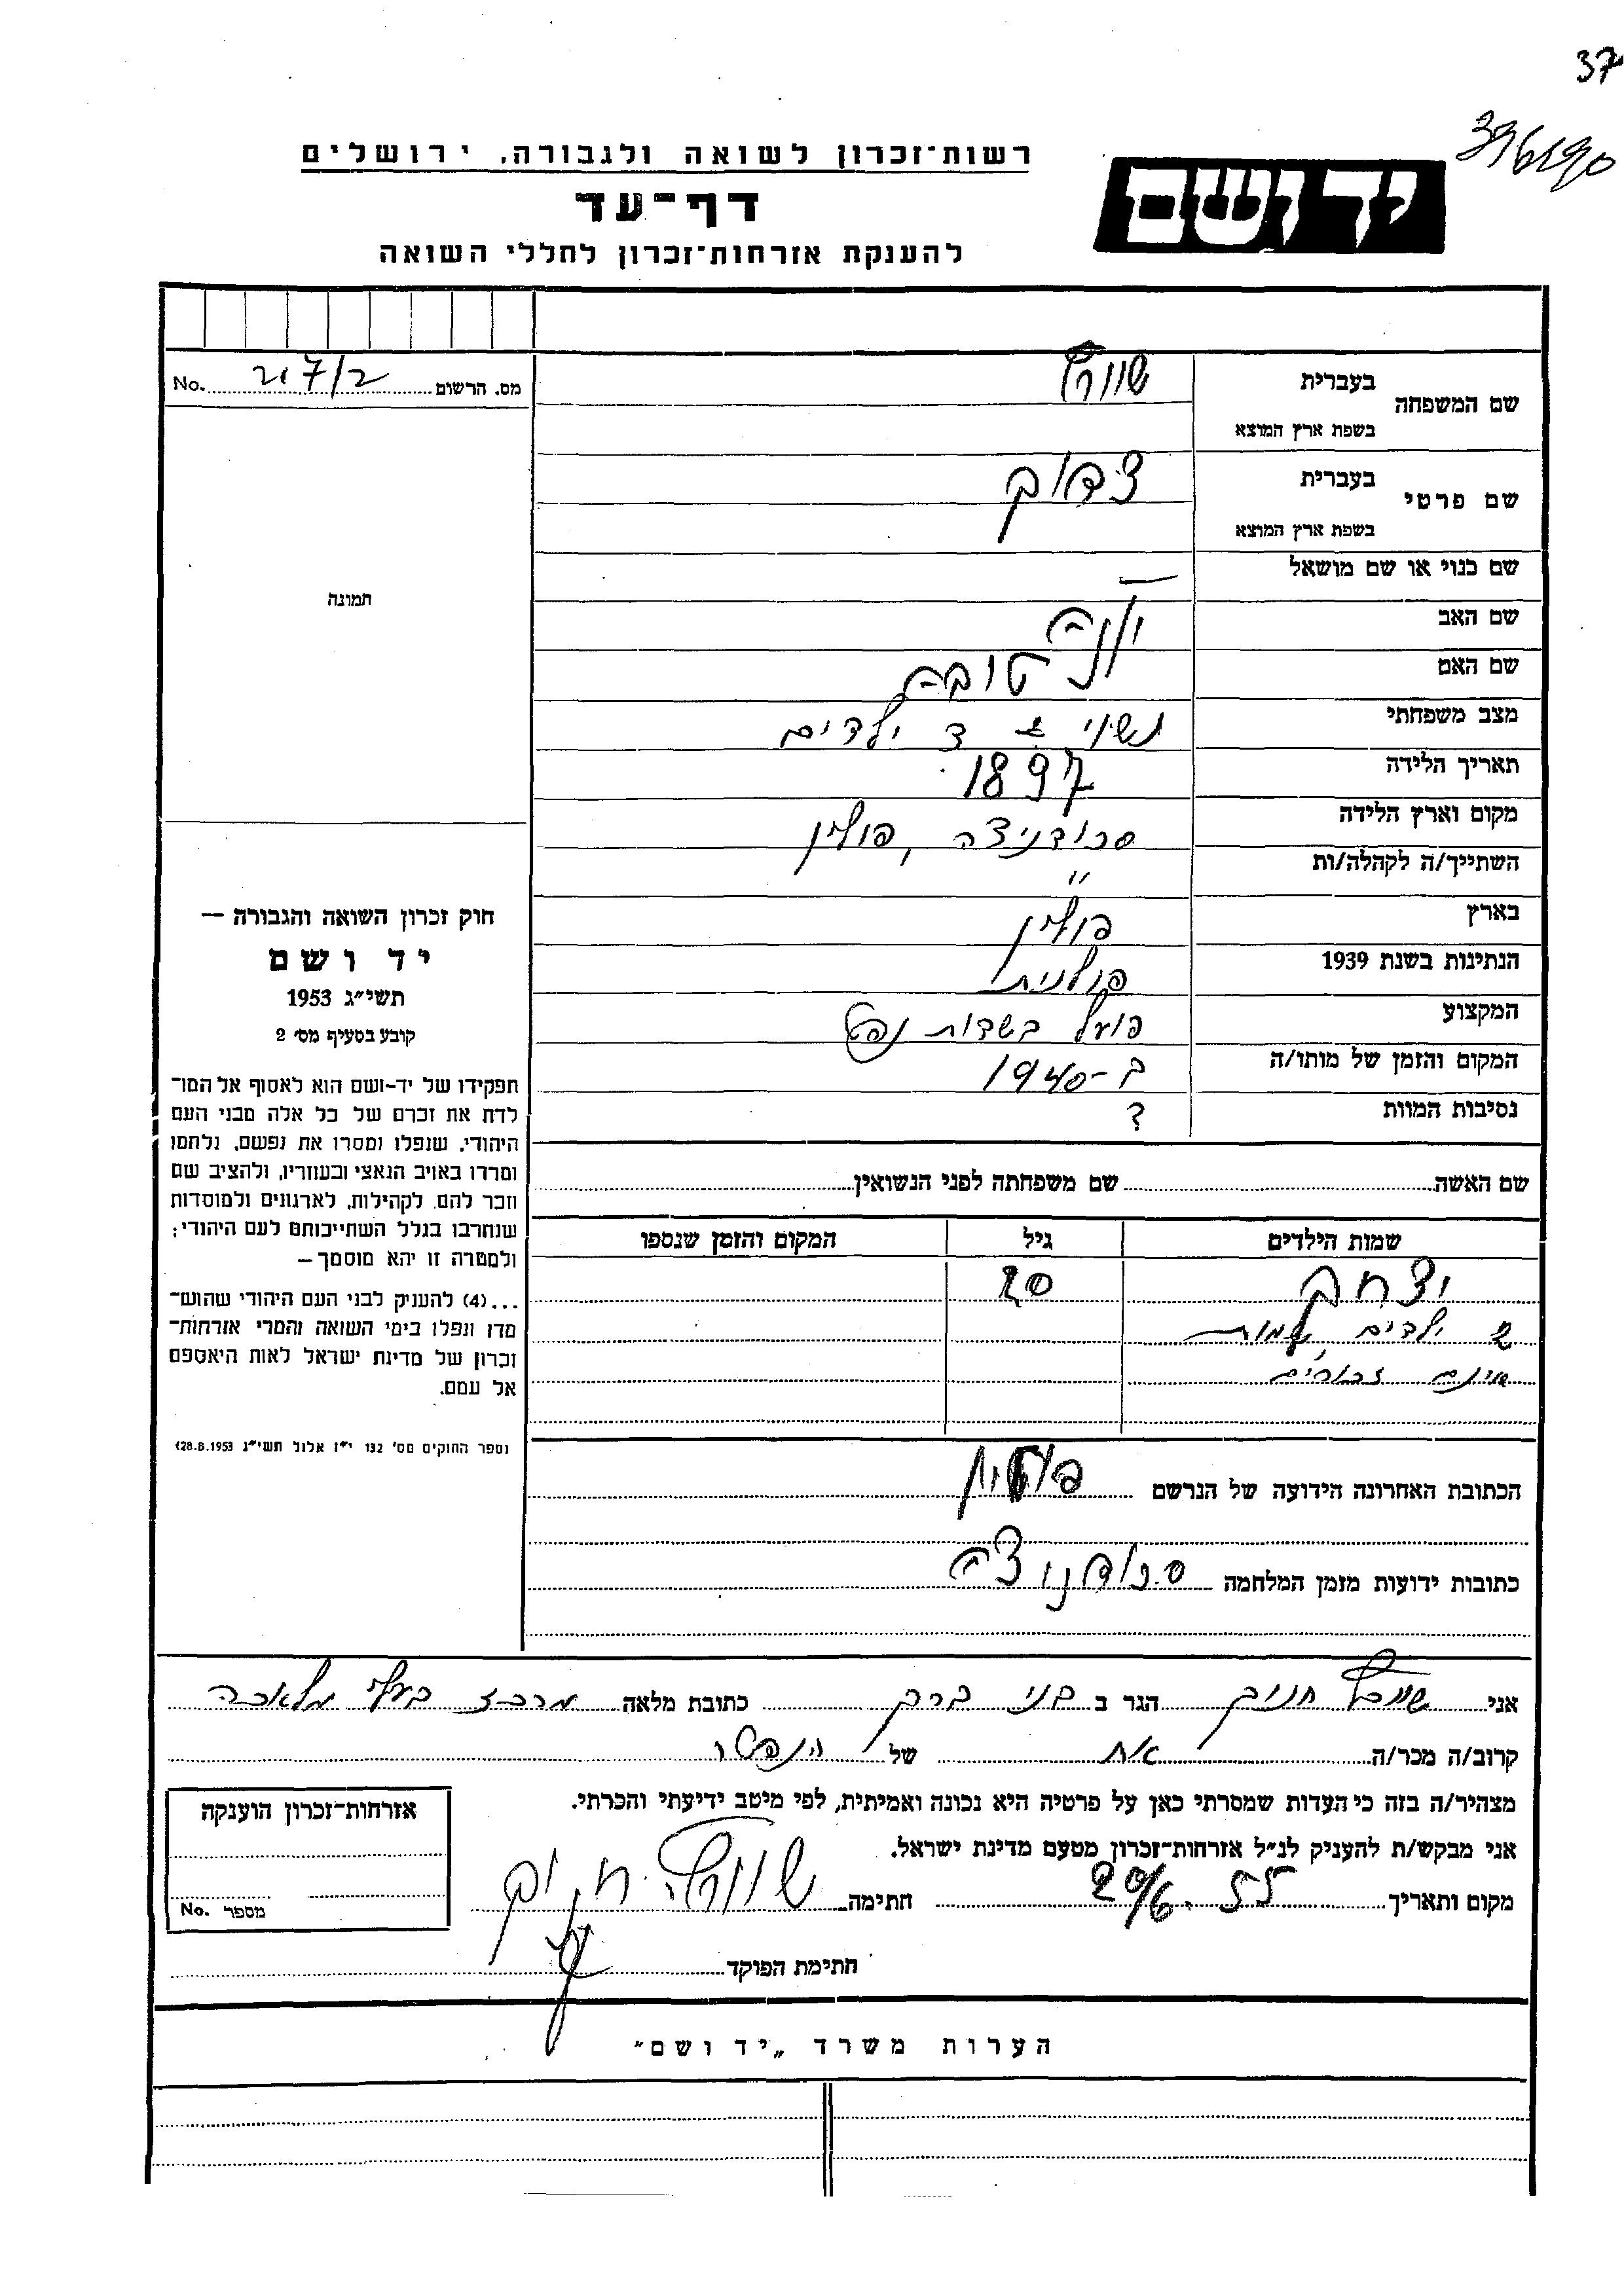 37
רשות־זכרון לשואה ולגבורה, ירושלים
יד ושם
דף־עד
להענקת אזרחות־זכרון לחללי השואה
מס. הרשום No.
שם המשפחה בעברית שוורץ
בשפת ארץ המוצא
שם פרטי בעברית צדוק
בשפת ארץ המוצא
שם כנוי או שם מושאל —
שם האב יונה
שם האם טובה
מצב משפחתי נשוי 3 ילדים
תאריך הלידה 1897
מקום וארץ הלידה סחודניצה, פולין
השתייך/ה לקהלה/ות "
בארץ פולין
הנתינות בשנת 1939 פולנית
המקצוע פועל בשדות נפט
המקום והזמן של מותו/ה ב-1940
נסיבות המוות ?
תמונה
חוק זכרון השואה והגבורה —
יד ושם
תשי״ג 1953
קובע בסעיף מס׳ 2
תפקידו של יד-ושם הוא לאסוף אל המו־
לדת את זכרם של כל אלה מבני העם
היהודי, שנפלו ומסרו את נפשם, נלחמו
ומרדו באויב הנאצי ובעוזריו, ולהציב שם
וזכר להם, לקהילות, לארגונים ולמוסדות
שנחרבו בגלל השתייכותם לעם היהודי;
ולמטרה זו יהא מוסמך—
...(4) להעניק לבני העם היהודי שהוש־
מדו ונפלו בימי השואה והמרי אזרחות־
זכרון של מדינת ישראל לאות היאספם
אל עמם.
(ספר החוקים מס׳ 132 י״ז אלול תשי״ג 28.8.1953)
שם האשה שם משפחתה לפני הנשואין
שמות הילדים גיל המקום והזמן שנספו
יצחק 20
2 ילדים שמות
אינם זכורים
הכתובת האחרונה הידועה של הנרשם פולין
כתובות ידועות מזמן המלחמה סחודניצה
אני שוורץ חנוך הגר ב בני ברק כתובת מלאה מרכז בעלי מלאכה
קרוב/ה מכר/ה אח של הנפטר
מצהיר/ה בזה כי העדות שמסרתי כאן על פרטיה היא נכונה ואמיתית, לפי מיטב ידיעתי והכרתי.
אני מבקש/ת להעניק לנ״ל אזרחות־זכרון מטעם מדינת ישראל.
מקום ותאריך 20/6.55 חתימה שוורץ חנוך
חתימת הפוקד
אזרחות־זכרון הוענקה
מספר No.
הערות משרד „יד ושם״